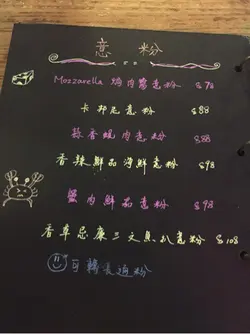 意粉
Mozzarella 燴肉醬意粉 $78
卡邦尼意粉 $88
蒜香蜆肉意粉 $88
香辣鮮品海鮮意粉 $98
蟹肉鮮茄意粉 $98
香草忌廉三文魚扒意粉 $108
可轉長通粉